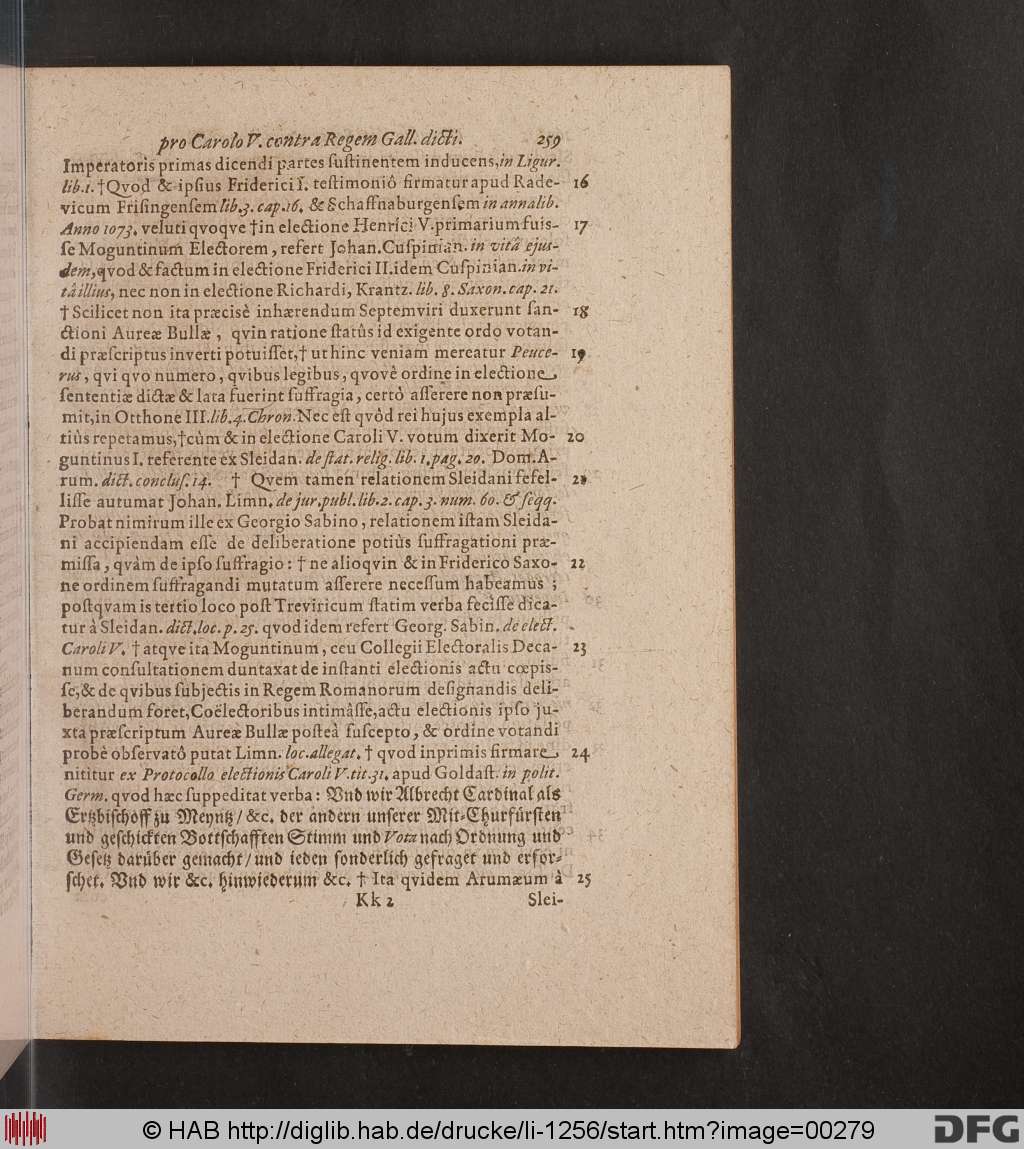 pro Carolo V. contra Regem Gall. dicti. 259
Imperatoris primas dicendi partes ſuſtinentem inducens, in Ligur.
lib. 1. †Qvod & ipſius Friderici I. teſtimoniô firmatur apud Rade- 16
vicum Friſingenſem lib. 3. cap. 16. & Schaffnaburgenſem in annalib.
Anno 1073. veluti qvoqve †in electione Henrici V. primarium fuiſ- 17
ſe Moguntinum Electorem, refert Johan. Cuſpinian. in vitâ ejus-
dem, qvod & factum in electione Friderici II. idem Cuſpinian. in vi-
tâ illius, nec non in electione Richardi, Krantz. lib. 8. Saxon. cap. 21.
† Scilicet non ita præcisè inhærendum Septemviri duxerunt ſan- 18
ctioni Aureæ Bullæ, qvin ratione ſtatûs id exigente ordo votan-
di præſcriptus inverti potuiſſet, † ut hinc veniam mereatur Peuce- 19
rus, qvi qvo numero, qvibus legibus, qvovè ordine in electione
ſententiæ dictæ & lata fuerint ſuffragia, certò aſſerere non præſu-
mit, in Otthone III. lib. 4. Chron. Nec eſt qvòd rei hujus exempla al-
tiùs repetamus, †cùm & in electione Caroli V. votum dixerit Mo- 20
guntinus I. referente ex Sleidan. de ſtat. relig. lib. 1. pag. 20. Dom. A-
rum. dict. concluſ. 14. † Qvem tamen relationem Sleidani fefel- 21
liſſe autumat Johan. Limn. de jur. publ. lib. 2. cap. 3. num. 60. & ſeqq.
Probat nimirum ille ex Georgio Sabino, relationem iſtam Sleida-
ni accipiendam eſſe de deliberatione potiùs ſuffragationi præ-
miſſa, qvàm de ipſo ſuffragio: † ne alioqvin & in Friderico Saxo- 22
ne ordinem ſuffragandi mutatum aſſerere neceſſum habeamus;
poſtqvam is tertio loco poſt Treviricum ſtatim verba feciſſe dica-
tur à Sleidan. dict. loc. p. 25. qvod idem refert Georg. Sabin. de elect.
Caroli V. † atqve ita Moguntinum, ceu Collegii Electoralis Deca- 23
num conſultationem duntaxat de inſtanti electionis actu cœpiſ-
ſe, & de qvibus ſubjectis in Regem Romanorum deſignandis deli-
berandum foret, Coëlectoribus intimâſſe, actu electionis ipſo ju-
xta præſcriptum Aureæ Bullæ poſteà ſuſcepto, & ordine votandi
probè obſervatô putat Limn. loc. allegat. † qvod inprimis firmare 24
nititur ex Protocollo electionis Caroli V. tit. 31. apud Goldaſt. in polit.
Germ. qvod hæc ſuppeditat verba: Vnd wir Albrecht Cardinal als
Ertzbiſchoff zu Meyntz / &c. der andern unſerer Mit-Churfürſten
und geſchickten Bottſchafften Stimm und Vota nach Ordnung und
Geſetz darüber gemacht / und ieden ſonderlich gefraget und erfor-
ſchet. Vnd wir &c. hinwiederum &c. † Ita qvidem Arumæum à 25
Kk 2 Slei-
© HAB http://diglib.hab.de/drucke/li-1256/start.htm?image=00279
DFG